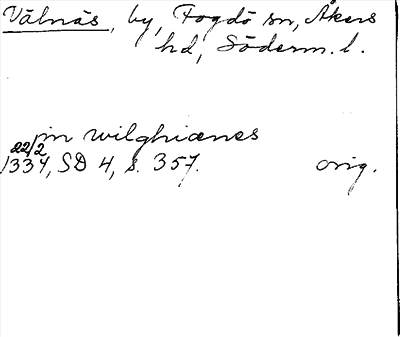 Välnäs, by, Fogdö sn, Åkers
hd, Söderm. l.
jn wilghianes
22/2
1334, SD 4, s. 357. orig.